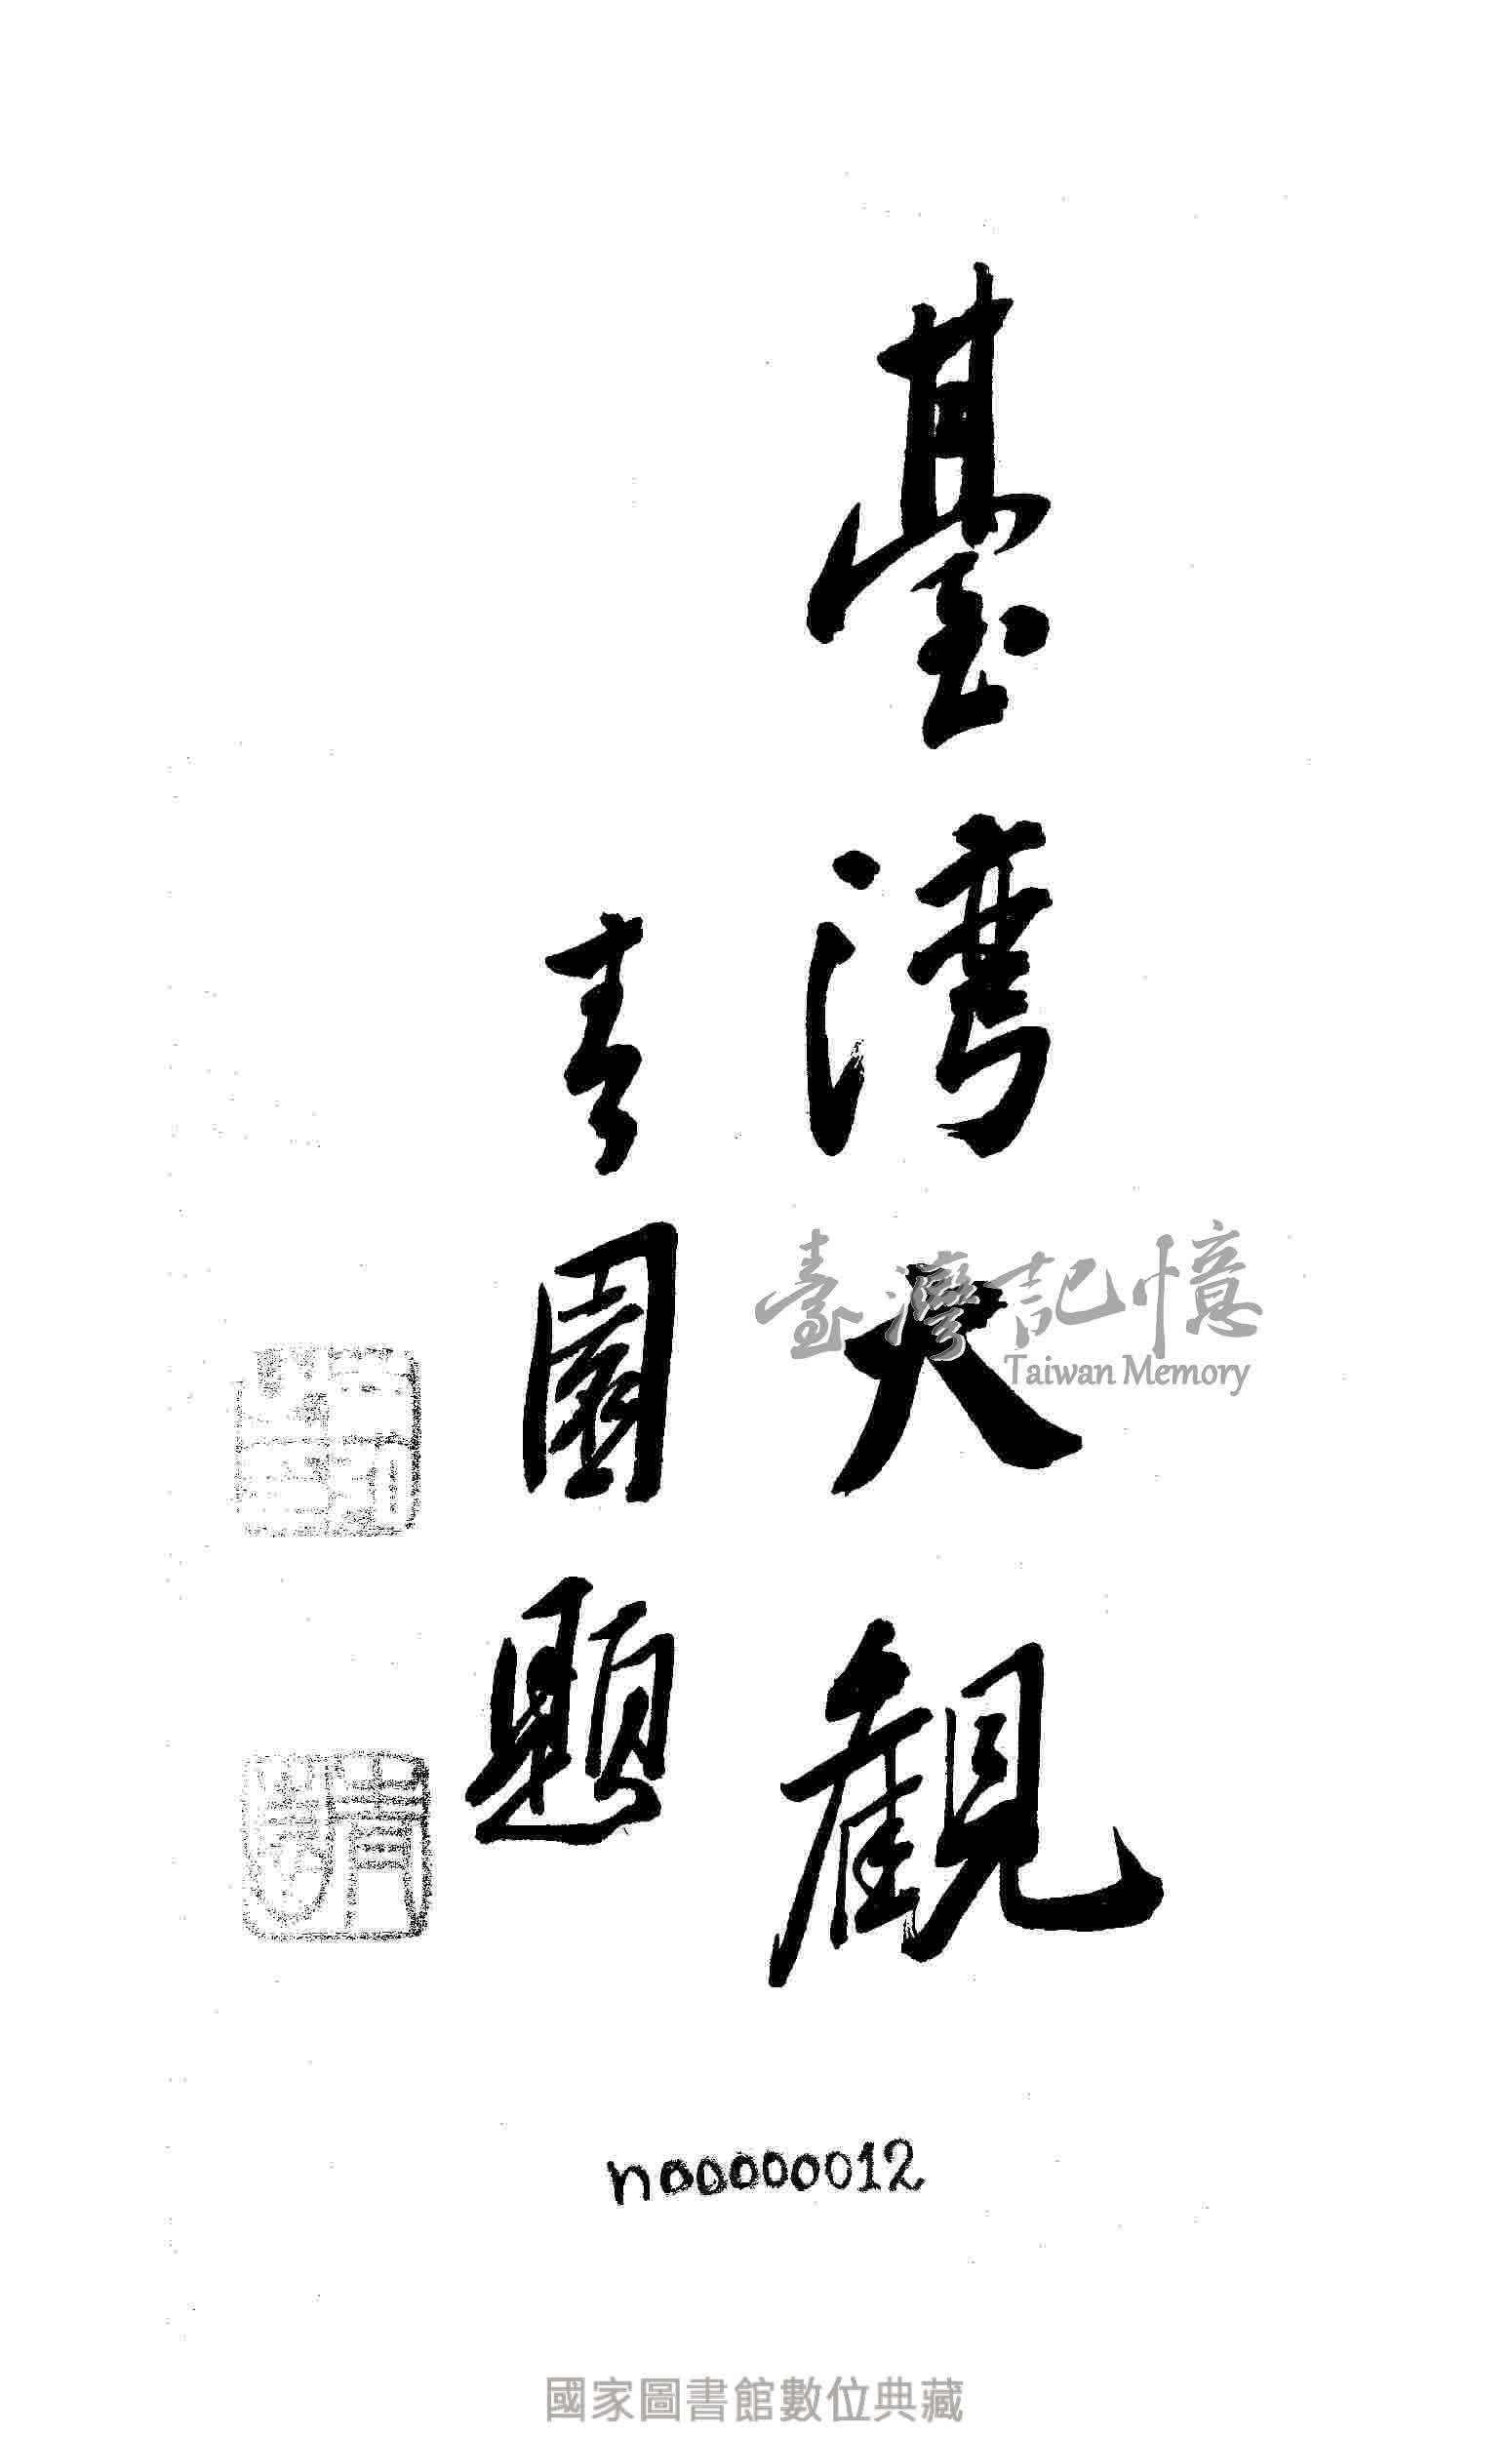 臺湾大観
青園題
臺灣記憶
Taiwan Memory
n00000012
國家圖書館數位典藏